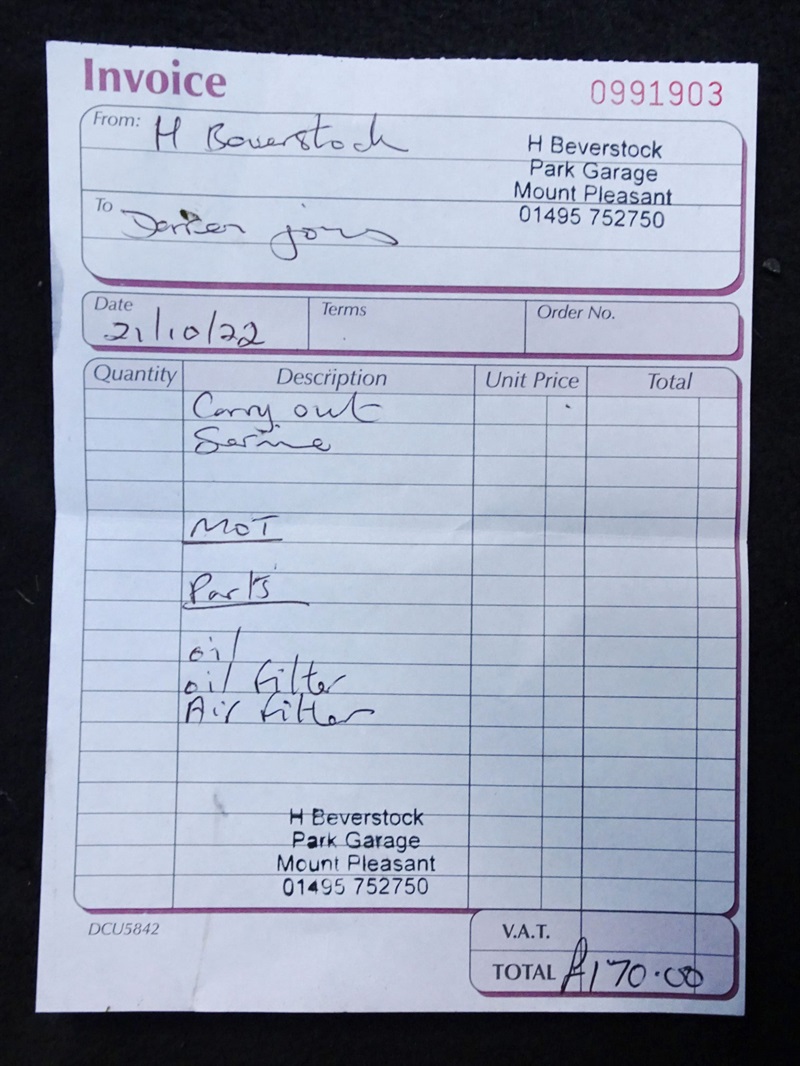 Invoice
0991903
From: H Beverstock
H Beverstock
Park Garage
Mount Pleasant
01495 752750
To
Date
21/10/22
Terms
Order No.
Quantity Description Unit Price Total
Carry out
Service
MOT
Parts
oil
oil filter
Air filter
H Beverstock
Park Garage
Mount Pleasant
01495 752750
DCU5842
V.A.T.
TOTAL £170.00